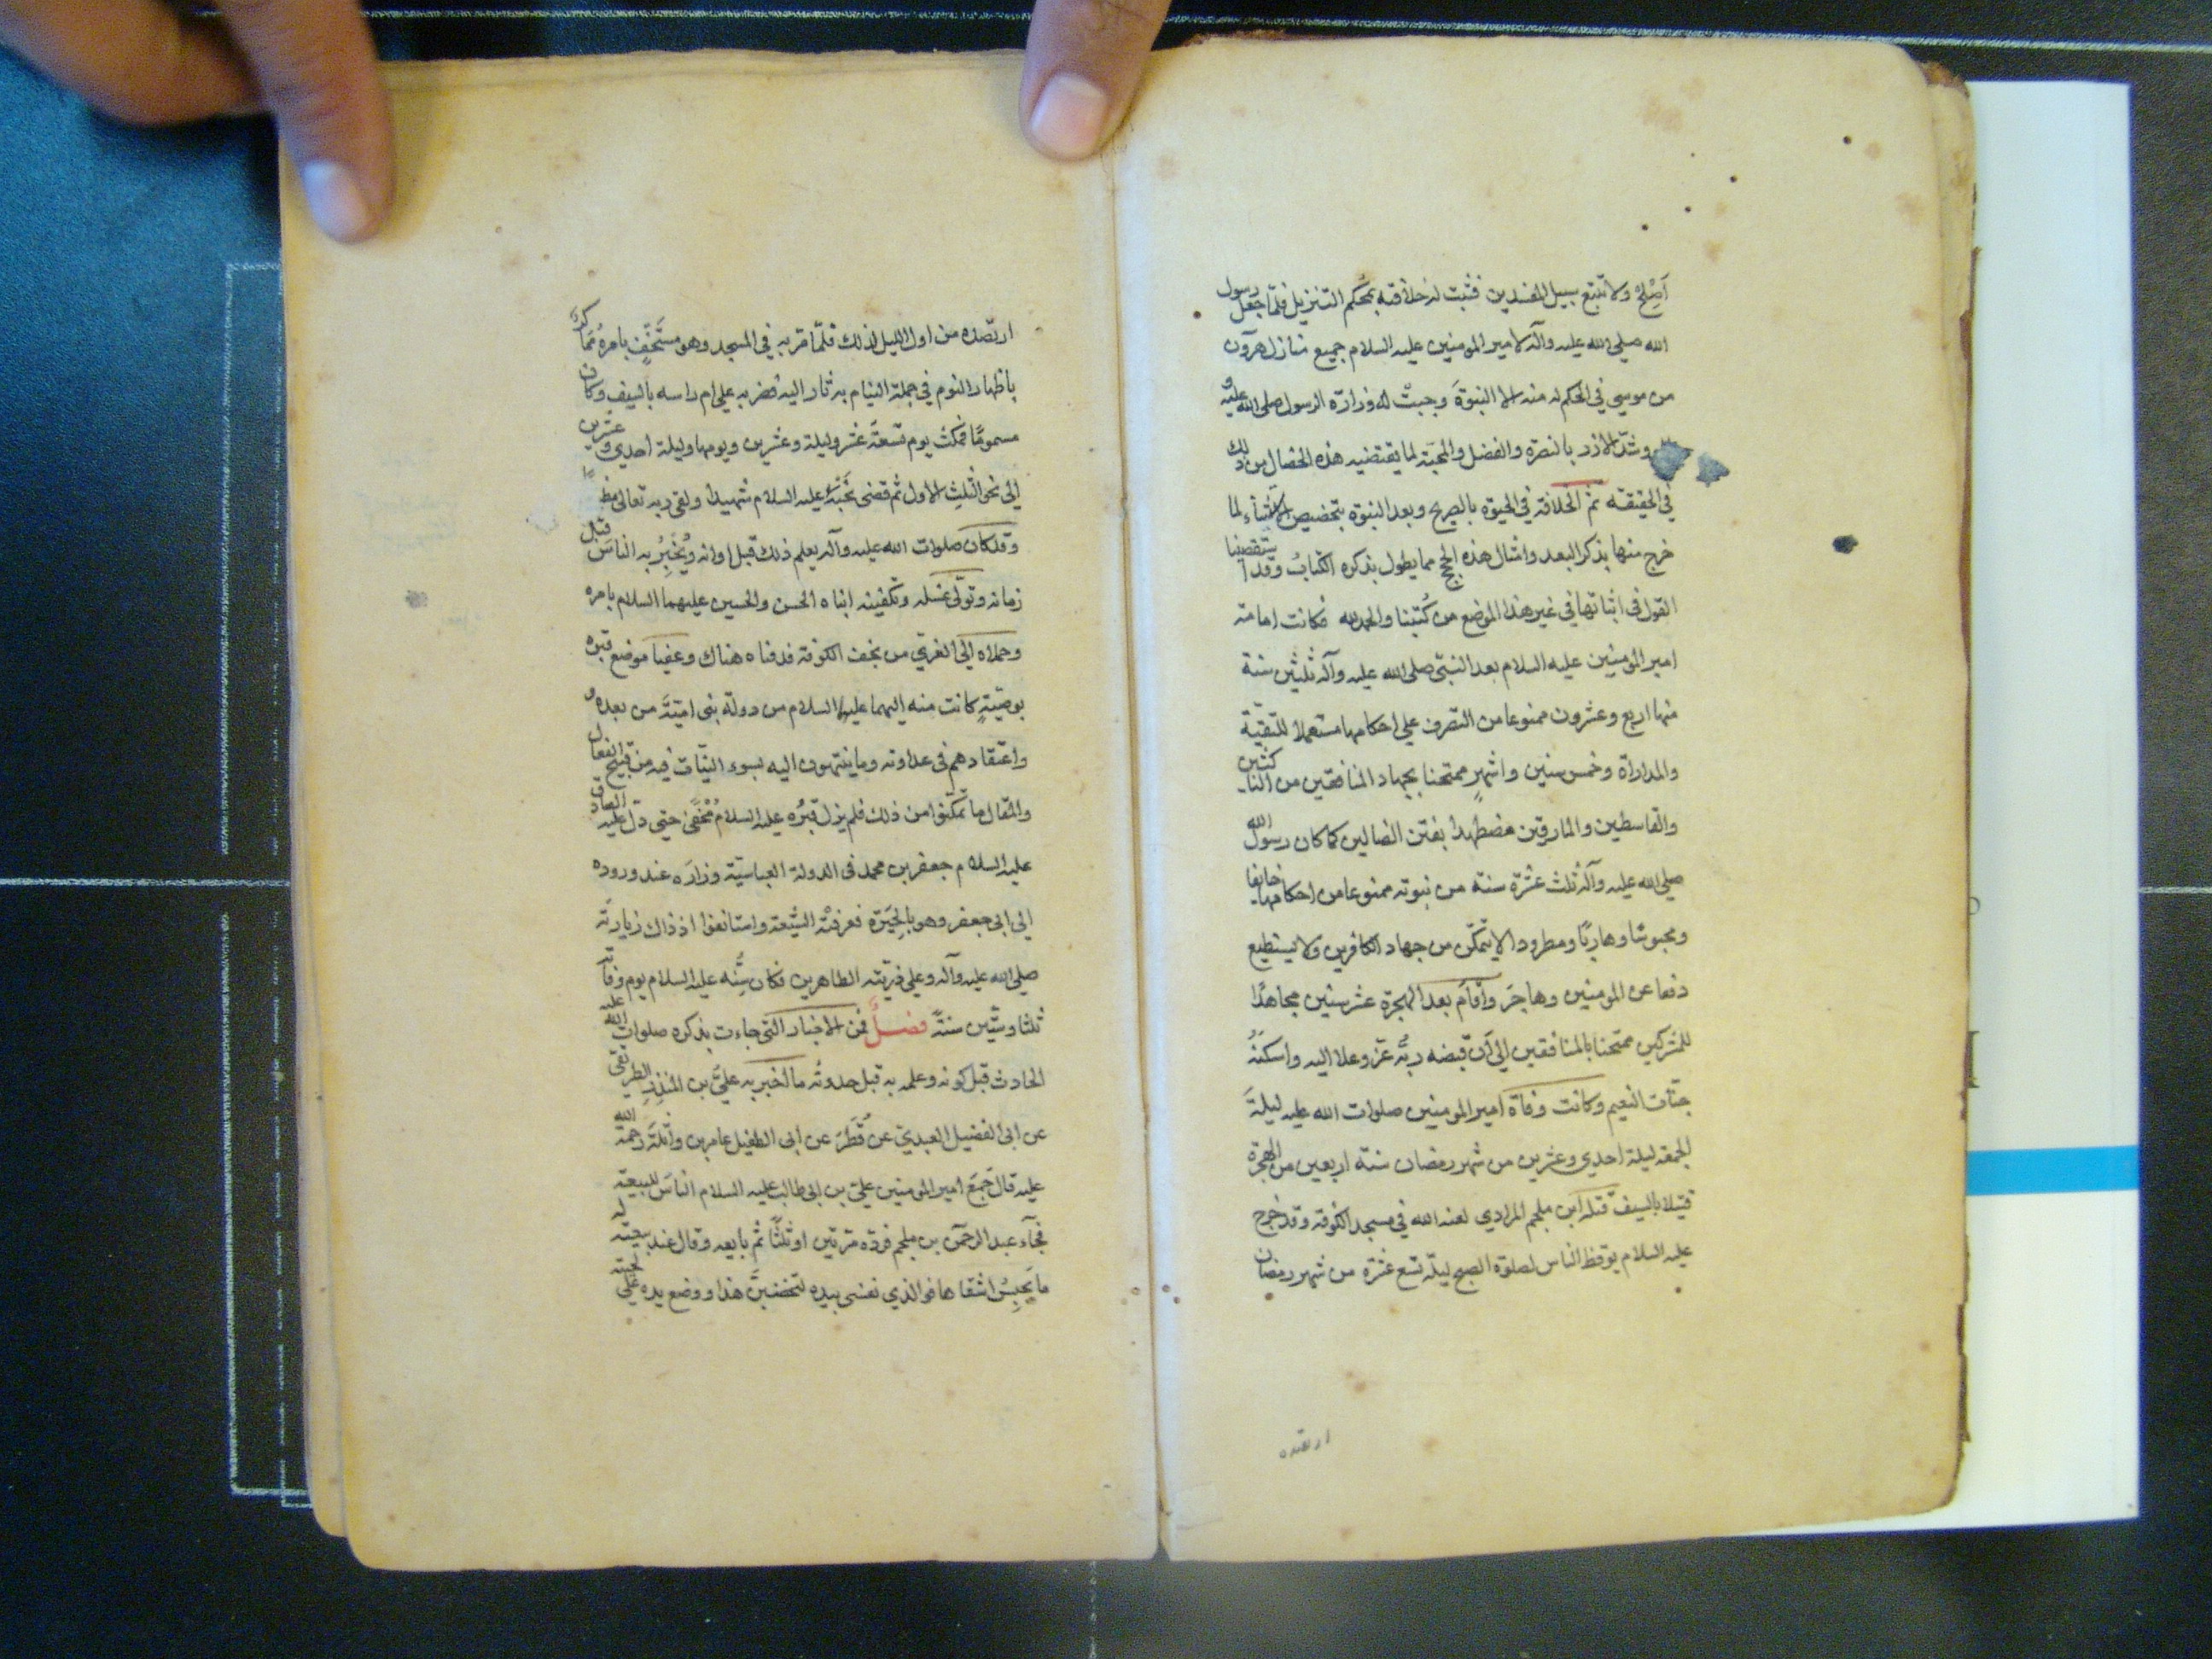 اصلح ولا تتبع سبيل المفسدين فثبت له خلافته بمحكم التنزيل فلما جعل رسول
الله صلى الله عليه وآله لامير المومنين عليه السلام جميع منازل هرون
من موسى في الحكم له منه الا النبوة وجبت له وزارة الرسول صلى الله عليه و
وشد الازر بالنصرة والفضل والمحبة لما يقتضيه هذه الخصال من ذلك
في الحقيقة ثم الخلافة في الحيوة بالصريح وبعد النبوة بتخصيص الاستثناء لما
خرج منها بذكر البعد وامثال هذه الحجج مما يطول بذكره الكتاب وقد استقصينا
القول في اثباتها في غير هذا الموضع من كتبنا والحمد لله فكانت امامة
امير المومنين عليه السلام بعد النبي صلى الله عليه وآله ثلثين سنة
منها اربع وعشرون ممنوعا من التصرف على احكامها مستعملا للتقية
والمداراة وخمس سنين واشهر ممتحنا بجهاد المنافقين من الناكثين
والقاسطين والمارقين مضطهدا بفتن الضالين كما كان رسول الله
صلى الله عليه وآله ثلث عشرة سنة من نبوته ممنوعا من احكامها خايفا
ومحبوسا وهاربا ومطرودا لا يتمكن من جهاد الكافرين ولا يستطيع
دفعا عن المومنين وهاجر وأقام بعد الهجرة عشر سنين مجاهدا
للمشركين ممتحنا بالمنافقين الى أن قبضه ربه عز وعلا اليه واسكنه
جنات النعيم وكانت وفاة امير المومنين صلوات الله عليه ليلة
الجمعة ليلة احدى وعشرين من شهر رمضان سنة اربعين من الهجرة
قتيلا بالسيف قتله ابن ملجم المرادي لعنه الله في مسجد الكوفة وقد خرج
عليه السلام يوقظ الناس لصلوة الصبح ليلة تسع عشرة من شهر رمضان
ارتصده
ارتصده من اول الليل لذلك فلما مر به في المسجد وهو مستخف بامره مماكر
باظهار النوم في جملة النيام به ثار اليه فضربه على ام راسه بالسيف وكان
مسموما فمكث يوم تسعة عشر وليلة وعشرين ويومها وليلة احدى وعشرين
الى نحو الثلث الاول ثم قضى نحبه عليه السلام شهيدا ولقى ربه تعالى مظ
وقد كان صلوات الله عليه وآله يعلم ذلك قبل اوانه ويخبر به الناس قبل
زمانه وتولى غسله وتكفينه ابناه الحسن والحسين عليهما السلام بامره
وحملاه الى الغري من نجف الكوفة فدفناه هناك وعفيا موضع قبره
بوصية كانت منه اليهما عليه السلام من دولة بنى امية من بعده و
واعتقادهم في عداوته وما ينتهون اليه بسوء النيات فيه من قبيح الفعال
والمقال ما تمكنوا من ذلك فلم يزل قبره عليه السلام مخفى حتى دل عليه الصادق
عليه السلام جعفر بن محمد في الدولة العباسية وزاره عند وروده
الى ابى جعفر وهو بالحيرة فعرفته الشيعة واستانفوا اذ ذاك زيارته
صلى الله عليه وآله وعلى ذريته الطاهرين فكان سنه عليه السلام يوم وفاته
ثلثا وستين سنة فصل فمن الاخبار التي جاءت بذكره صلوات الله عليه
الحادث قبل كونه وعلمه به قبل حدوثه ما اخبر به علي بن المنذر الطريقى
عن ابى الفضيل العبدي عن قطر عن ابى الطفيل عامر بن واثلة رحمة الله
عليه قال جمع امير المومنين علي بن ابى طالب عليه السلام الناس للبيعة
فجآء عبد الرحمن بن ملجم فرده مرتين او ثلثا ثم بايعه وقال عند بيعته له
ما يحبس اشقاها فوالذي نفسى بيده لتخضبن هذا ووضع يده على لحيته